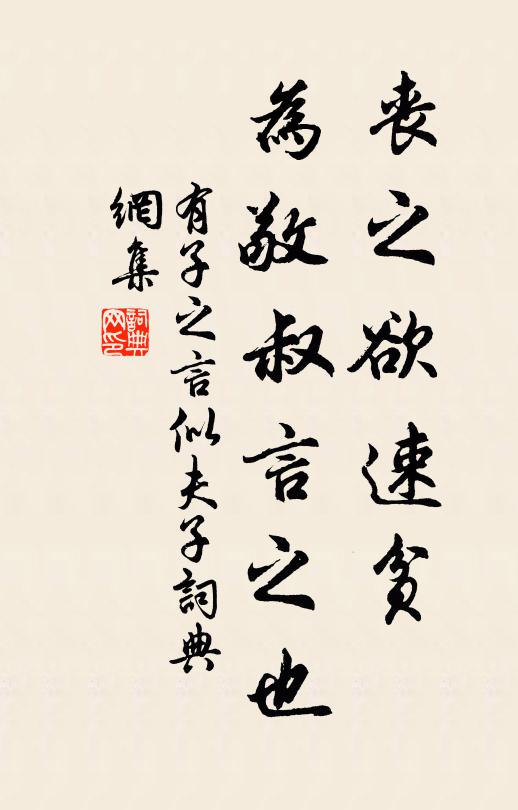 喪之欲速貧
為敬叔言之也
有子之言似夫子詞典
網集
詞典
网印